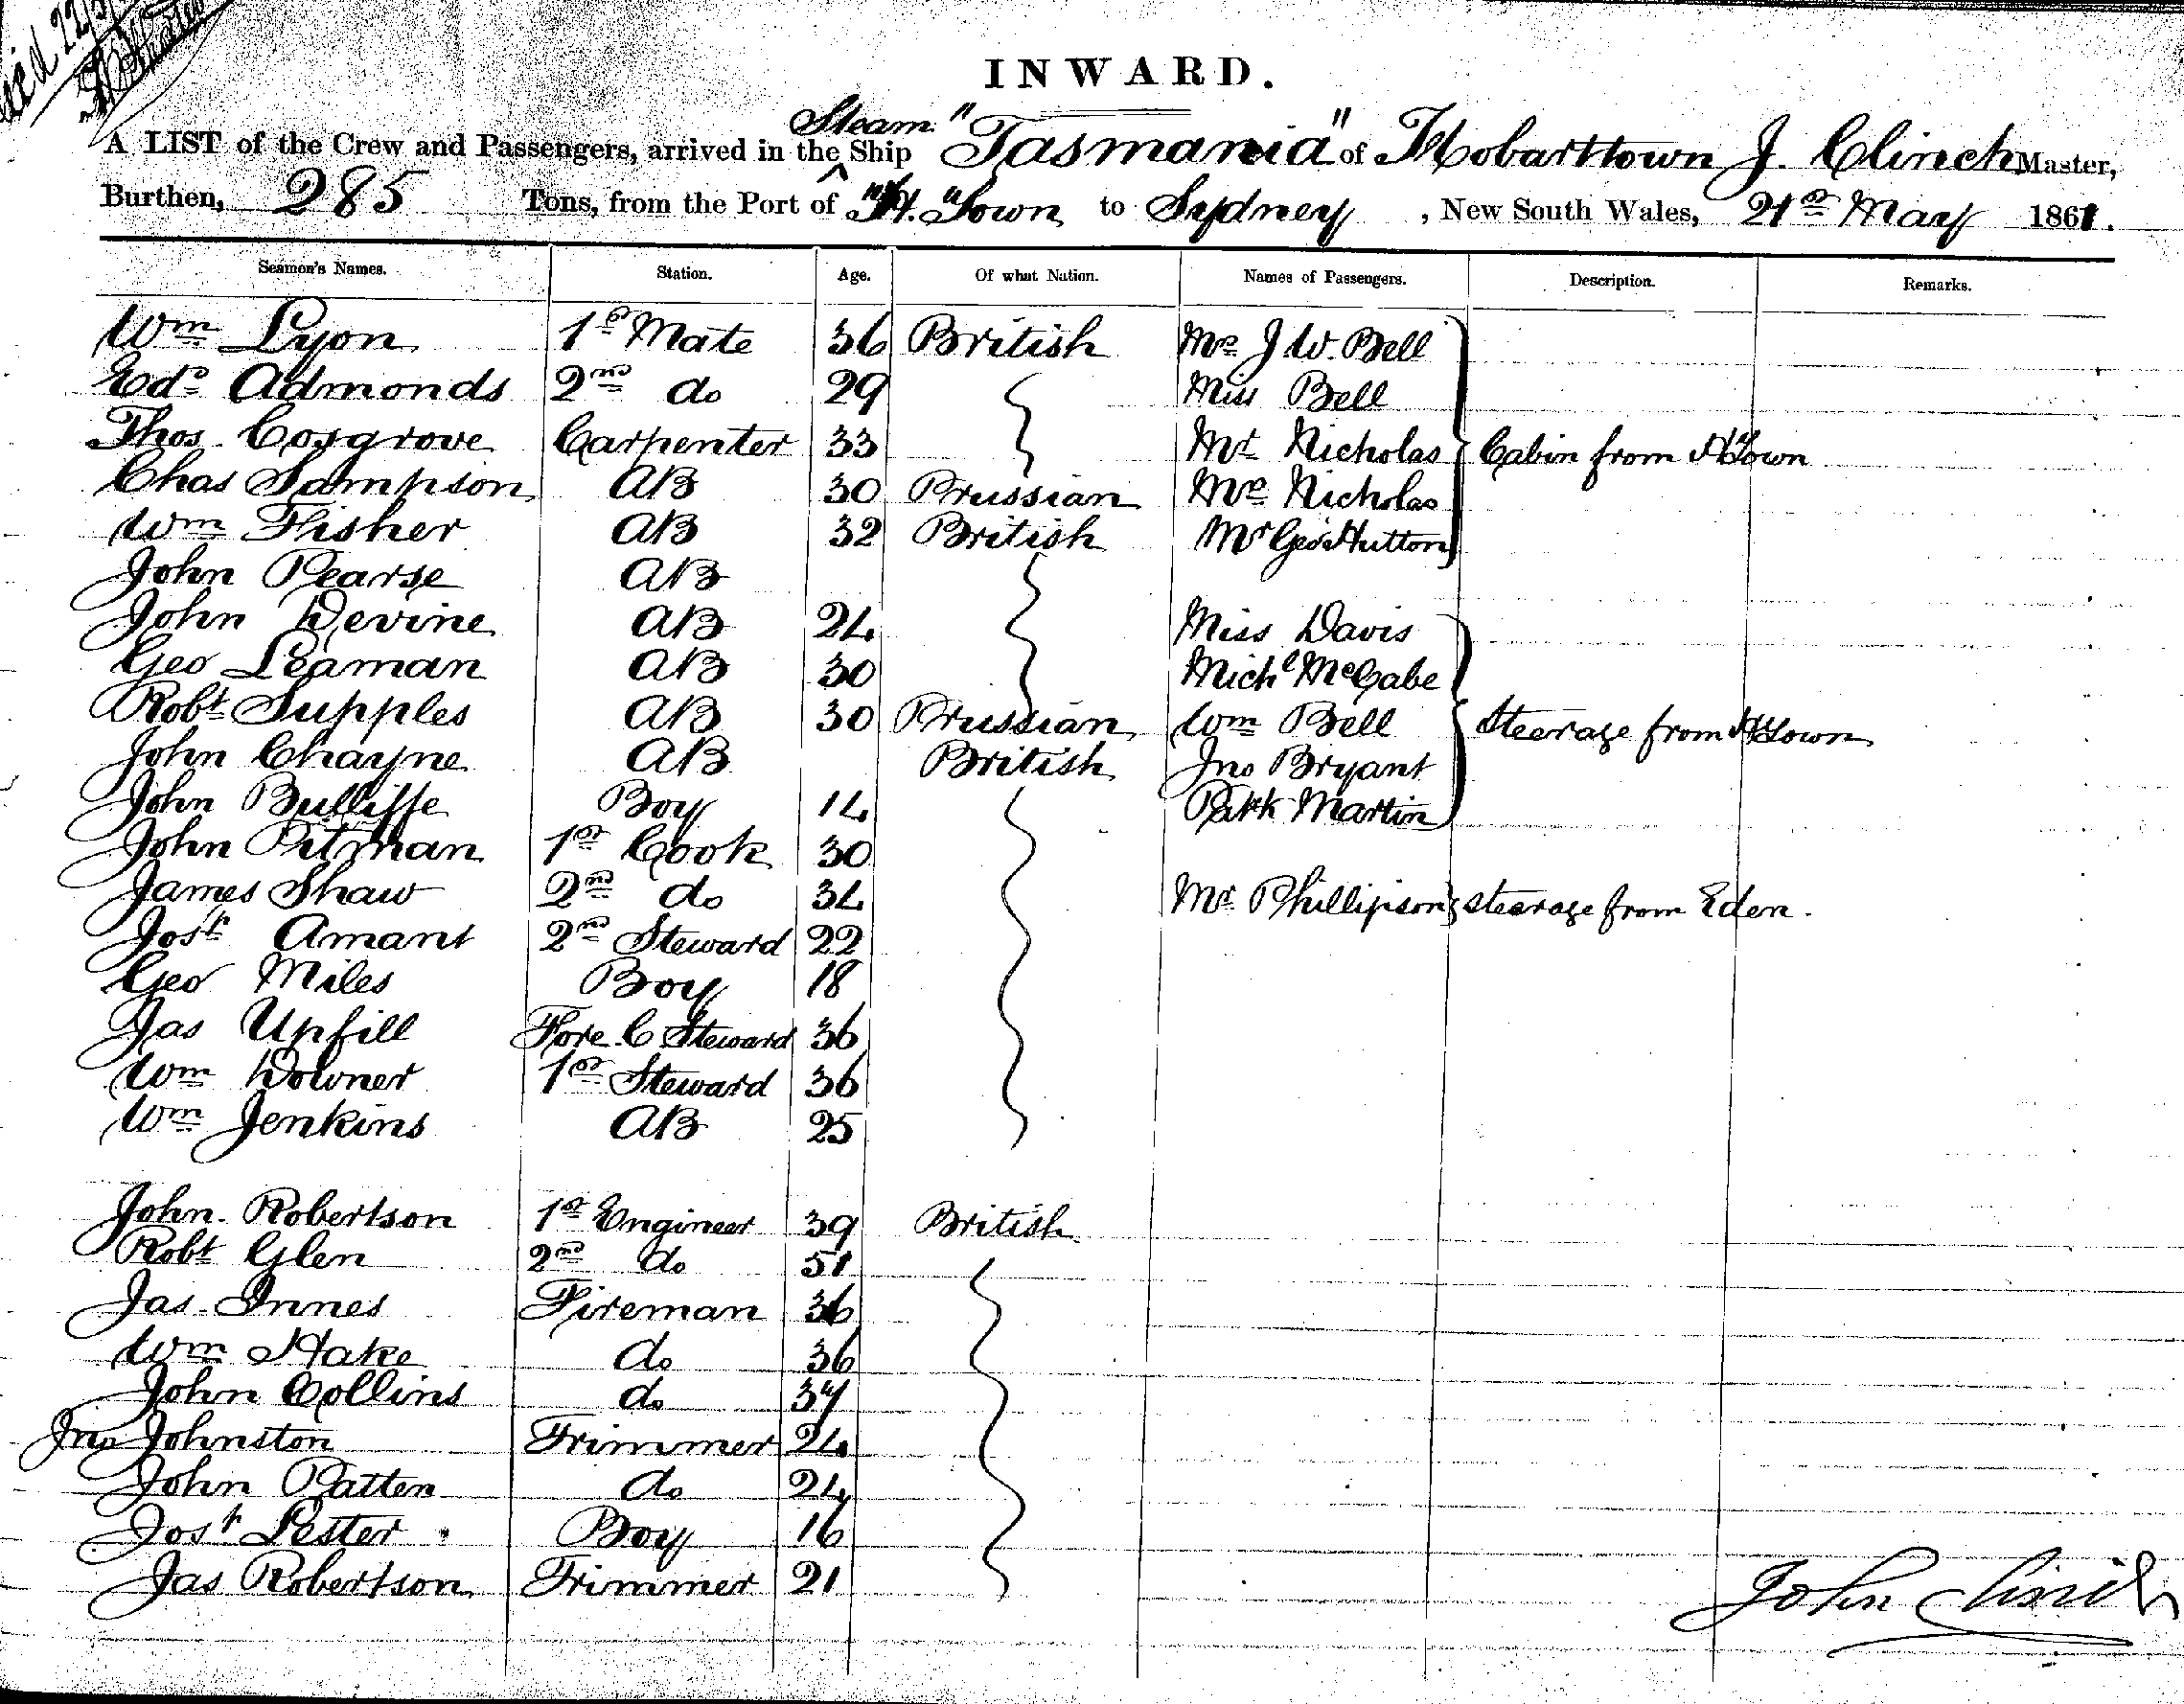 INWARD.
A LIST of the Crew and Passengers, arrived in the Steam Ship "Tasmania" of Hobarttown J. Clinch Master,
Burthen, 285 Tons, from the Port of H. Town to Sydney, New South Wales, 21st May 1861.
Seamen's Names. Station. Age. Of what Nation. Names of Passengers. Description. Remarks.
Wm Lyon 1st Mate 36 British Mrs J W. Bell
Edd Admonds 2nd do 29 Miss Bell
Thos Cosgrove Carpenter 33 Mr Nicholas Cabin from H Town
Chas Sampson AB 30 Prussian Mrs Nicholas
Wm Fisher AB 32 British Mr Geo Hutton
John Pearse AB
John Devine AB 24 Miss Davis
Geo Leaman AB 30 Michl McCabe
Robt Supples AB 30 Prussian Wm Bell Steerage from H Town
John Chayne AB British Jno Bryant
John Bulliffe Boy 14 Patk Martin
John Pitman 1st Cook 30
James Shaw 2nd do 34 Mr Phillipson steerage from Eden.
Josh Amant 2nd Steward 22
Geo Miles Boy 18
Jas Upfill Fore C Steward 36
Wm Downer 1st Steward 36
Wm Jenkins AB 25
John Robertson 1st Engineer 39 British
Robt Glen 2nd do 51
Jas Innes Fireman 36
Wm Hake do 36
John Collins do 37
Jno Johnston Trimmer 24
John Patten do 24
Josh Lester Boy 16
Jas Robertson Trimmer 21
John Clinch